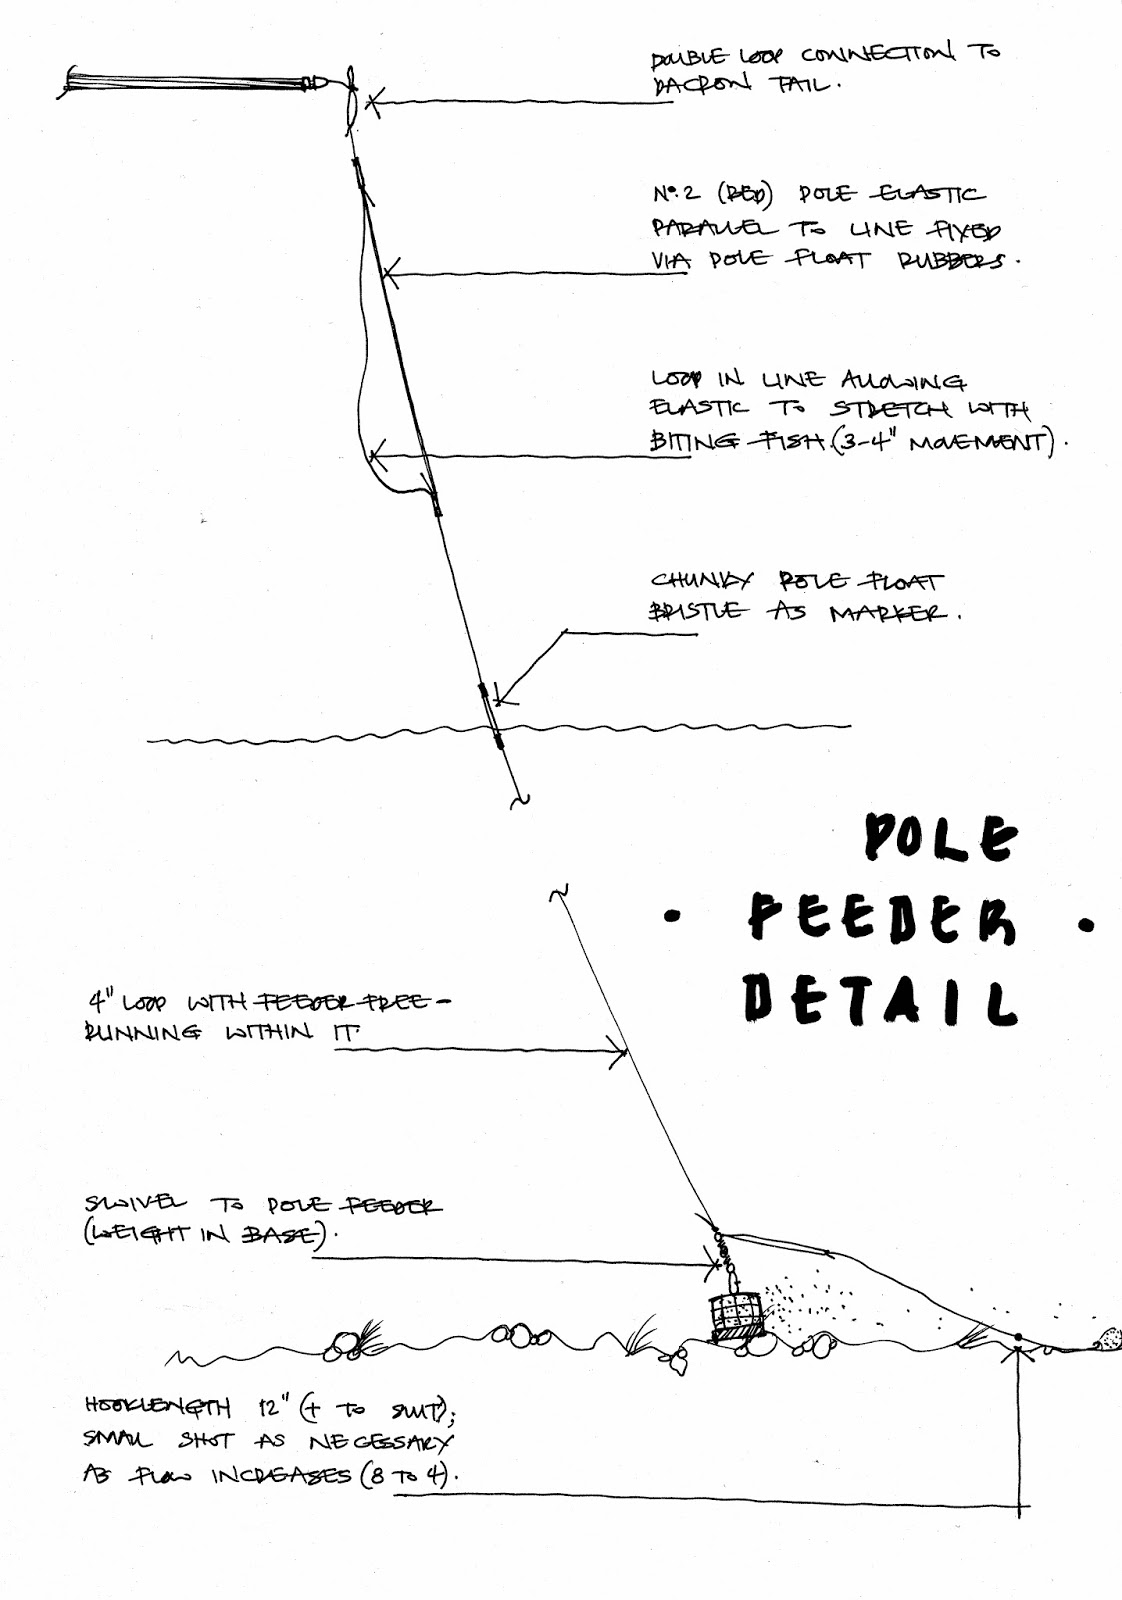 DOUBLE LOOP CONNECTION TO
DACRON TAIL.
No.2 (RED) POLE ELASTIC
PARALLEL TO LINE FIXED
VIA POLE FLOAT RUBBERS.
LOOP IN LINE ALLOWING
ELASTIC TO STRETCH WITH
BITING FISH (3-4" MOVEMENT).
CHUNKY POLE FLOAT
BRISTLE AS MARKER.
POLE
· FEEDER ·
DETAIL
4" LOOP WITH FEEDER FREE-
RUNNING WITHIN IT.
SWIVEL TO POLE FEEDER
(WEIGHT IN BASE).
HOOKLENGTH 12" (+ TO SUIT);
SMALL SHOT AS NECESSARY
AS FLOW INCREASES (8 TO 4).